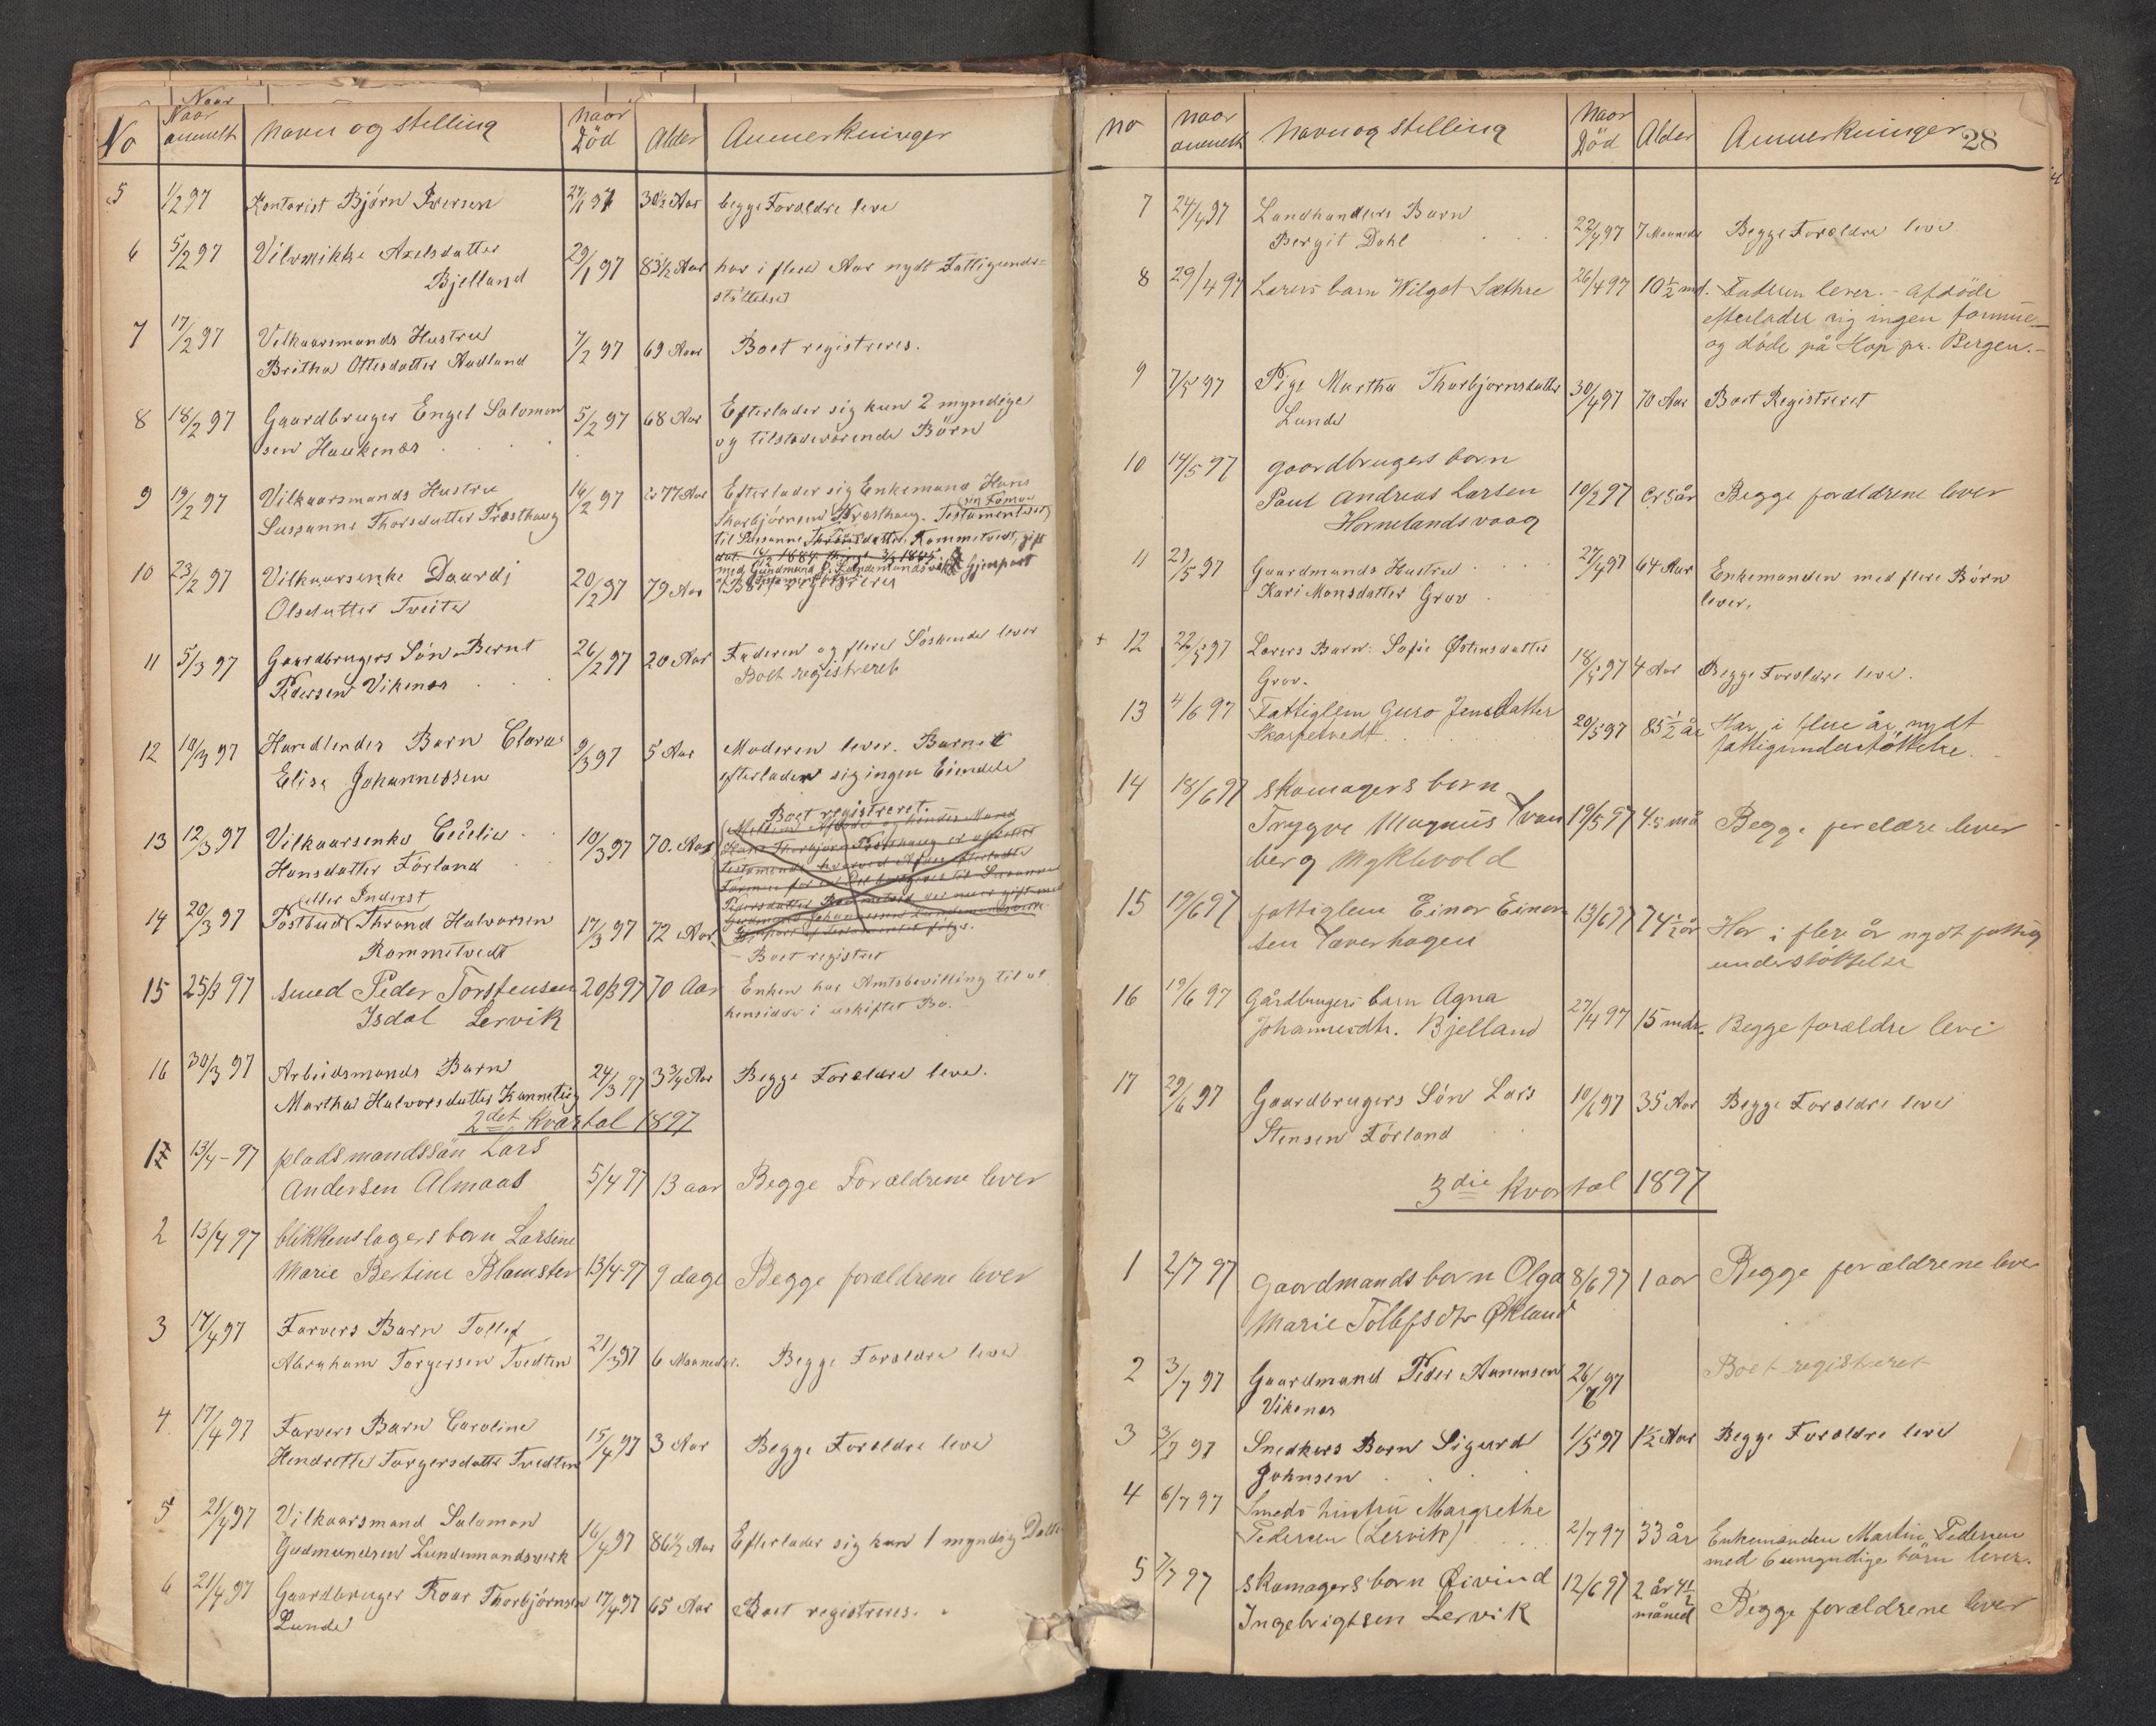 Naar
No Naar anmeldt Navn og stilling Naar Död Alder Anmerkninger
5 1/2 97 Kontorist Bjørn Iversen 27/1 97 30½ Aar begge Forældre leve
6 5/2 97 Axelsdatter 29/1 97 83½ Aar har i flere Aar nydt Fattigunds=
Bjelland støttelse
7 17/2 97 Vilkaarsmands Hustru
Britha Ottesdatter Aadland 7/2 97 69 Aar Boet registreres.
8 18/2 97 Gaardbruger Engel Salomon 5/2 97 68 Aar Efterlader sig kun 2 myndige
sen Haukenæs og tilstedeværende Börn
9 19/2 97 Vilkaarsmands Hustru 14/2 97 77 Aar Efterlader sig Enkemand Hans
Susanne Thorsdatter Præsthaug Thorbjørnsen Præsthaug. Testamenteret
til Susanne Rommetvedt, gift
10 23/2 97 Vilkaarsenke Daardi 20/2 97 79 Aar med Gudmund J. Lundemandsværk Gjenpart
Olsdatter Tveite Boet registreres
11 5/3 97 Gaardbrugers Sön Bernt 26/2 97 20 Aar Faderen og flere Söskende lever
Pedersen Vikenæs Boet registreret
12 10/3 97 Handlendes Barn Clara 9/3 97 5 Aar Moderen lever. Barnet
Elise Johannessen efterlader sig ingen Eiendele
13 12/3 97 Vilkaarsenke Cecilie 10/3 97 70 Aar Boet registreret.
Hansdatter Førland
eller Inderst
14 20/3 97 Postbud Thrond Halvorsen 17/3 97 72 Aar
Rommetvedt Boet registret
15 25/3 97 Smed Peder Torstensen 20/3 97 70 Aar Enken har Amtsbevilling til at
Isdal Lervik hensidde i uskiftet Bo.
16 30/3 97 Arbeidsmands Barn 24/3 97 3¾ Aar Begge Forældre leve.
Martha Halvorsdatter
2det Kvartal 1897
1 13/4-97 pladsmandssön Lars
Andersen Almaas 5/4 97 13 aar Begge Forældrene lever
2 13/4 97 blikkenslagers barn Larsine
Marie Bertine Blomster 13/4-97 9 dage Begge forældrene lever
3 17/4 97 Farvers Barn Tollef
Abraham Torgersen Tvedten 21/3 97 6 Maaneder. Begge Forældre leve
4 17/4 97 Farvers Barn Caroline
Hendrette Torgersdatter Tvedten 15/4 97 3 Aar Begge Forældre leve
5 21/4 97 Vilkaarsmand Salomon
Gudmundsen Lundemandsverk 16/4 97 86½ Aar Efterlader sig kun 1 myndig Datter
6 21/4 97 Gaardbruger Roar Thorbjørnsen 17/4 97 65 Aar Boet registreres.
Lunde
28
No Naar anmeldt Navn og stilling Naar Död Alder Anmerkninger
7 24/4 97 Landhandlers Barn
Bergit Dahl 22/4 97 7 Maaneder Begge Forældre leve
8 29/4 97 Lærers barn Wilgot Sæthre 26/4 97 10½ md. Faderen lever. - Afdöde
efterlader sig ingen formue
og döde på Hop pr. Bergen.-
9 7/5 97 Pige Martha Thorbjørnsdatter 30/4 97 70 Aar Boet Registreret
Lunde
10 14/5 97 gaardbrugers barn
Paul Andreas Larsen 10/2 97 Cr 5 år Begge forældrene lever
Hornelandsvaag
11 21/5 97 Gaardmands Hustru 27/4 97 64 Aar Enkemanden med flere Börn
Kari Monsdatter Grov lever.
+ 12 22/5 97 Lærers Barn: Sofie Østensdatter 18/5 97 4 Aar Begge Forældre leve.
Grov.
13 4/6 97 Fattiglem Guro Jensdatter 20/5 97 85½ år Har i flere år nydt
Skarpetvedt fattigunderstöttelse.
14 18/6 97 skomagers barn
Trygve Magnus Svan 19/5 97 4.5 må Begge foreldre lever
berg Myklevold
15 19/6 97 fattiglem Einar Einar 13/6 97 74½ år Har i flere år nydt fattig
sen Laverhagen understöttelse
16 19/6 97 Gårdbrugers barn Agna
Johannesdtr. Bjelland 27/4 97 15 mdr. Begge forældre leve
17 29/6 97 Gaardbrugers Sön Lars 10/6 97 35 Aar Begge Forældre leve
Stensen Førland
3die kvartal 1897
1 2/7 97 Gaardmands barn Olga 8/6 97 1 aar Begge forældrene lever
Marie Tollefsdtr Økland
2 3/7 97 Gaardmand Peder Aanensen 26/6 97 Boet registreret
Vikenes
3 3/7 97 Snedkers Barn Sigurd 1/5 97 1½ Aar Begge Forældre leve
Johnsen
4 6/7 97 Smeds hustru Margrethe
Pedersen (Lervik) 2/7 97 33 år Enkemanden Martin Pedersen
med 6 umyndige börn lever.
5 7/7 97 skomagers barn Øivind 12/6 97 2 år 4½ måned Begge forældrene lever
Ingebrigtsen Lervik